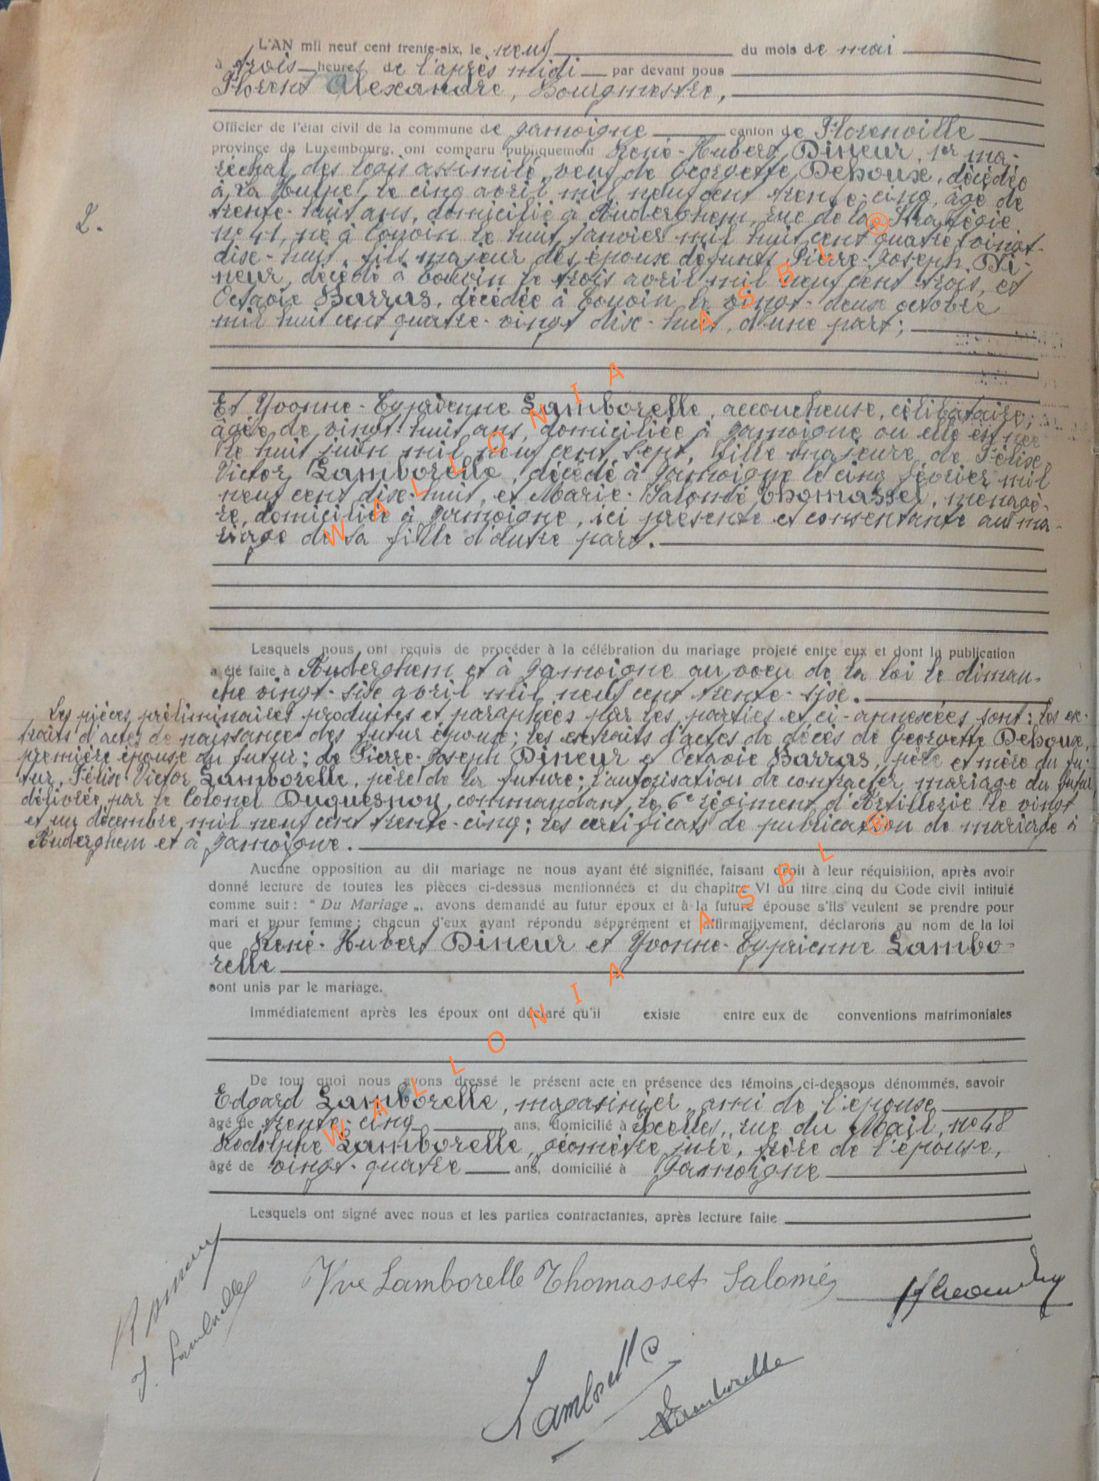 L'AN mil neuf cent trente-six, le neuf du mois de mai
à trois heures de l'après midi par devant nous
Florent Alexandre, Bourgmestre,
Officier de l'état civil de la commune de Jamoigne canton de Florenville
province de Luxembourg, ont comparu publiquement René-Hubert Dineur, 1er ma-
réchal des logis assimilé, veuf de Georgette Dehoux, décédée
à La Hulpe, le cinq avril mil neuf cent trente-cinq, âgé de
trente-huit ans, domicilié à Auderghem, rue de la Stratégie
no 41, né à Couvin le huit janvier mil huit cent quatre vingt-
dix-huit, fils majeur des époux défunts Pierre-Joseph Di-
neur, décédé à Couvin le trois avril mil neuf cent trois, et
Octavie Barras, décédée à Couvin le vingt-deux octobre
mil huit cent quatre-vingt dix-huit, d'une part;
2.
Et Yvonne-Cyprienne Lamborelle, accoucheuse, célibataire,
âgée de vingt-huit ans, domiciliée à Jamoigne où elle est née
le huit juin mil neuf cent sept, fille majeure de Félix-
Victor Lamborelle, décédé à Jamoigne le cinq février mil
neuf cent dix-huit, et Marie-Salomé Thomasset, ménagè-
re, domiciliée à Jamoigne, ici présente et consentante au ma-
riage de sa fille d'autre part.
Lesquels nous ont requis de procéder à la célébration du mariage projeté entre eux et dont la publication
a été faite à Auderghem et à Jamoigne au voeu de la loi le diman-
che vingt-six avril mil neuf cent trente-six.
Les pièces préliminaires produites et paraphées par les parties et ci-annexées sont: les ex-
traits d'actes de naissance des futur époux; les extraits d'actes de décès de Georgette Dehoux,
première épouse du futur; de Pierre-Joseph Dineur et Octavie Barras, père et mère du fu-
tur, Félix-Victor Lamborelle, père de la future; l'autorisation de contracter mariage du futur
délivrée par le Colonel Duquesnoy, commandant le 6e régiment d'Artillerie le vingt
et un décembre mil neuf cent trente-cinq; les certificats de publication de mariage à
Auderghem et à Jamoigne.
Aucune opposition au dit mariage ne nous ayant été signifiée, faisant droit à leur réquisition, après avoir
donné lecture de toutes les pièces ci-dessus mentionnées et du chapitre VI du titre cinq du Code civil intitulé
comme suit : " Du Mariage ", avons demandé au futur époux et à la future épouse s'ils veulent se prendre pour
mari et pour femme ; chacun d'eux ayant répondu séparément et affirmativement, déclarons au nom de la loi
que René-Hubert Dineur et Yvonne-Cyprienne Lambo-
relle
sont unis par le mariage.
Immédiatement après les époux ont déclaré qu'il existe entre eux de conventions matrimoniales
De tout quoi nous avons dressé le présent acte en présence des témoins ci-dessous dénommés, savoir
Edgard Lamborelle, magasinier, ami de l'épouse
âgé de trente-cinq ans, domicilié à Ixelles, rue du Mail, no 48
Rodolphe Lamborelle, géomètre juré, frère de l'épouse,
âgé de vingt-quatre ans, domicilié à Jamoigne
Lesquels ont signé avec nous et les parties contractantes, après lecture faite
R Dineur
Y. Lamborelle
Vve Lamborelle Thomasset Salomé
Lamborelle
Lamborelle
WALLONIA ASBL ®
WALLONIA ASBL ®